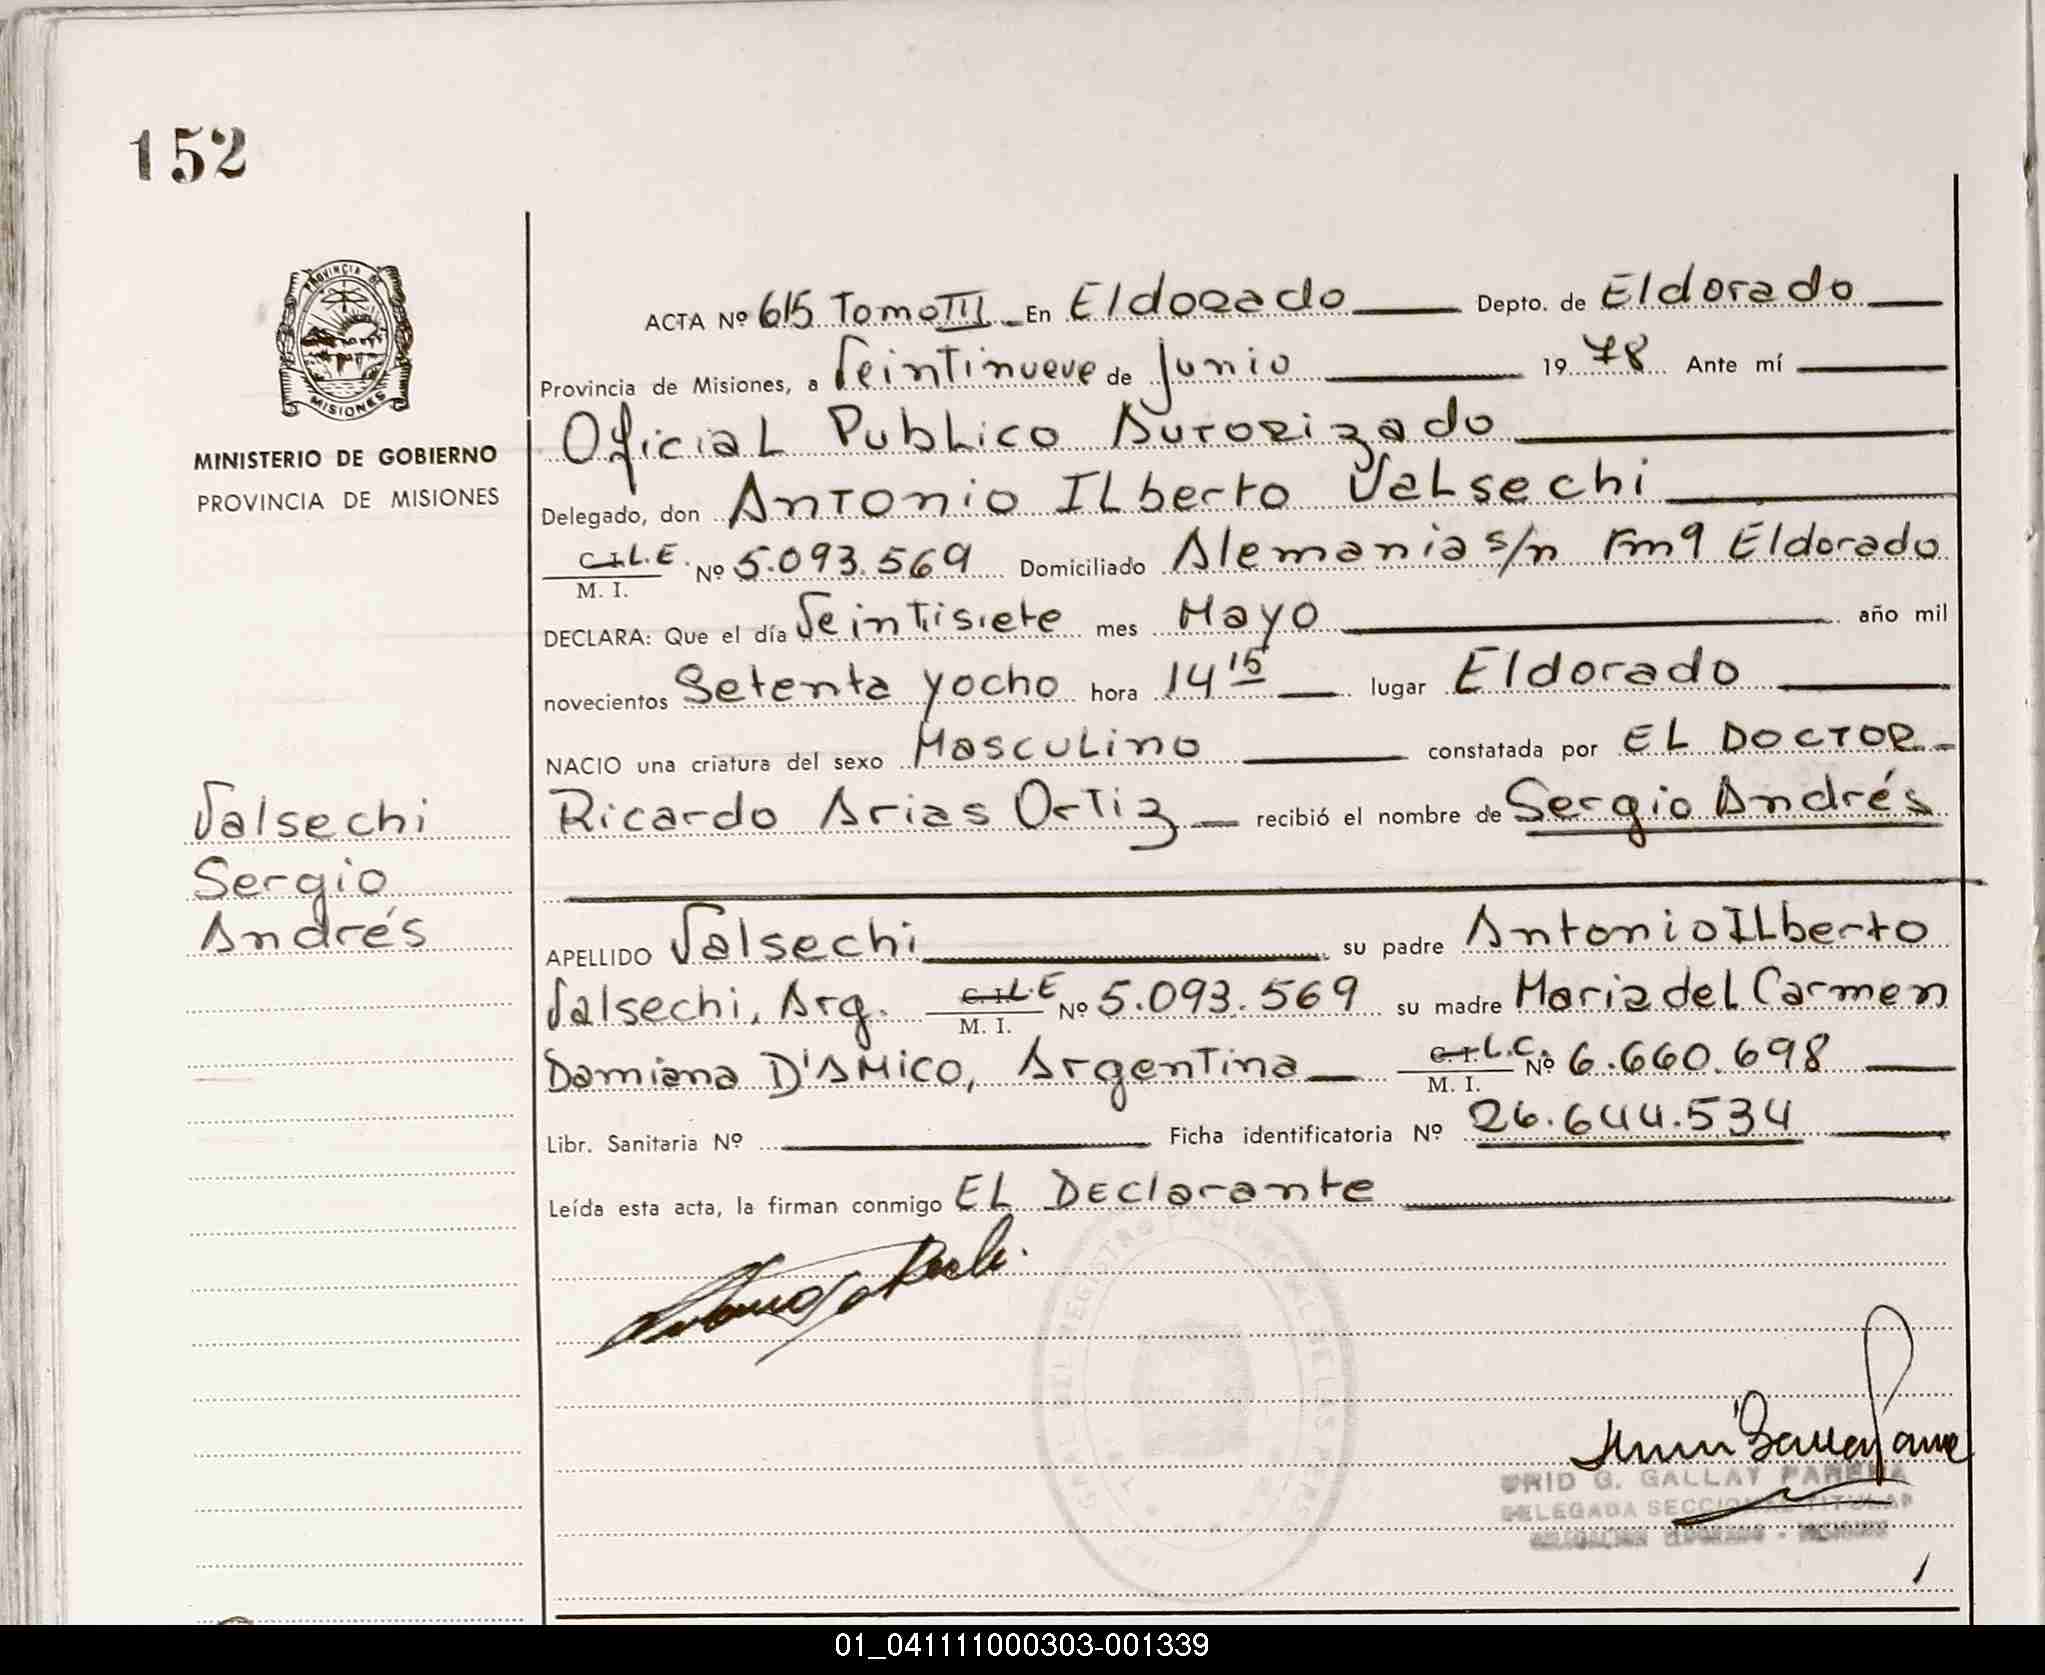 152
PROVINCIA DE
MISIONES
MINISTERIO DE GOBIERNO
PROVINCIA DE MISIONES
ACTA Nº 615 Tomo III En Eldorado Depto. de Eldorado
Provincia de Misiones, a Veintinueve de Junio 19 78 Ante mí
Oficial Publico Autorizado
Delegado, don Antonio Ilberto Valsechi
C.I. L.E. M. I. Nº 5.093.569 Domiciliado Alemania s/n Km9 Eldorado
DECLARA: Que el día Veintisiete mes Mayo año mil
novecientos Setenta y ocho hora 14 15 lugar Eldorado
NACIO una criatura del sexo Masculino constatada por EL DOCTOR
Ricardo Arias Ortiz recibió el nombre de Sergio Andrés
Valsechi
Sergio
Andrés
APELLIDO Valsechi su padre Antonio Ilberto
Valsechi, Arg. C.I. L.E M. I. Nº 5.093.569 su madre Maria del Carmen
Damiana D'AMICO, Argentina C.I. L.C. M. I. Nº 6.660.698
Libr. Sanitaria Nº Ficha identificatoria Nº 26.644.534
Leída esta acta, la firman conmigo EL Declarante
REGISTRO PROVINCIAL DE LAS PERS
G. GALLAY PAREÑA
DELEGADA SECCIONAL TITULAR
01_041111000303-001339